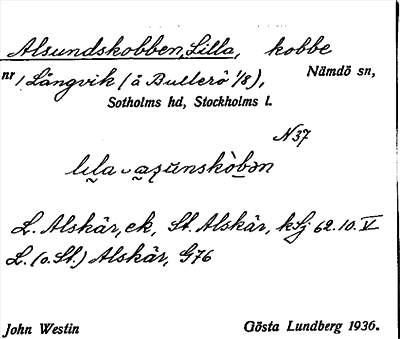 Alsundskobben, Lilla, kobbe
nr 1 Långvik (å Bullerö 1/8), Nämdö sn,
Sotholms hd, Stockholms l.
N 37
L. Alskär, ek, St. Alskär, kSj 62.10.V
L. (o. St.) Alskär, G76
John Westin Gösta Lundberg 1936.